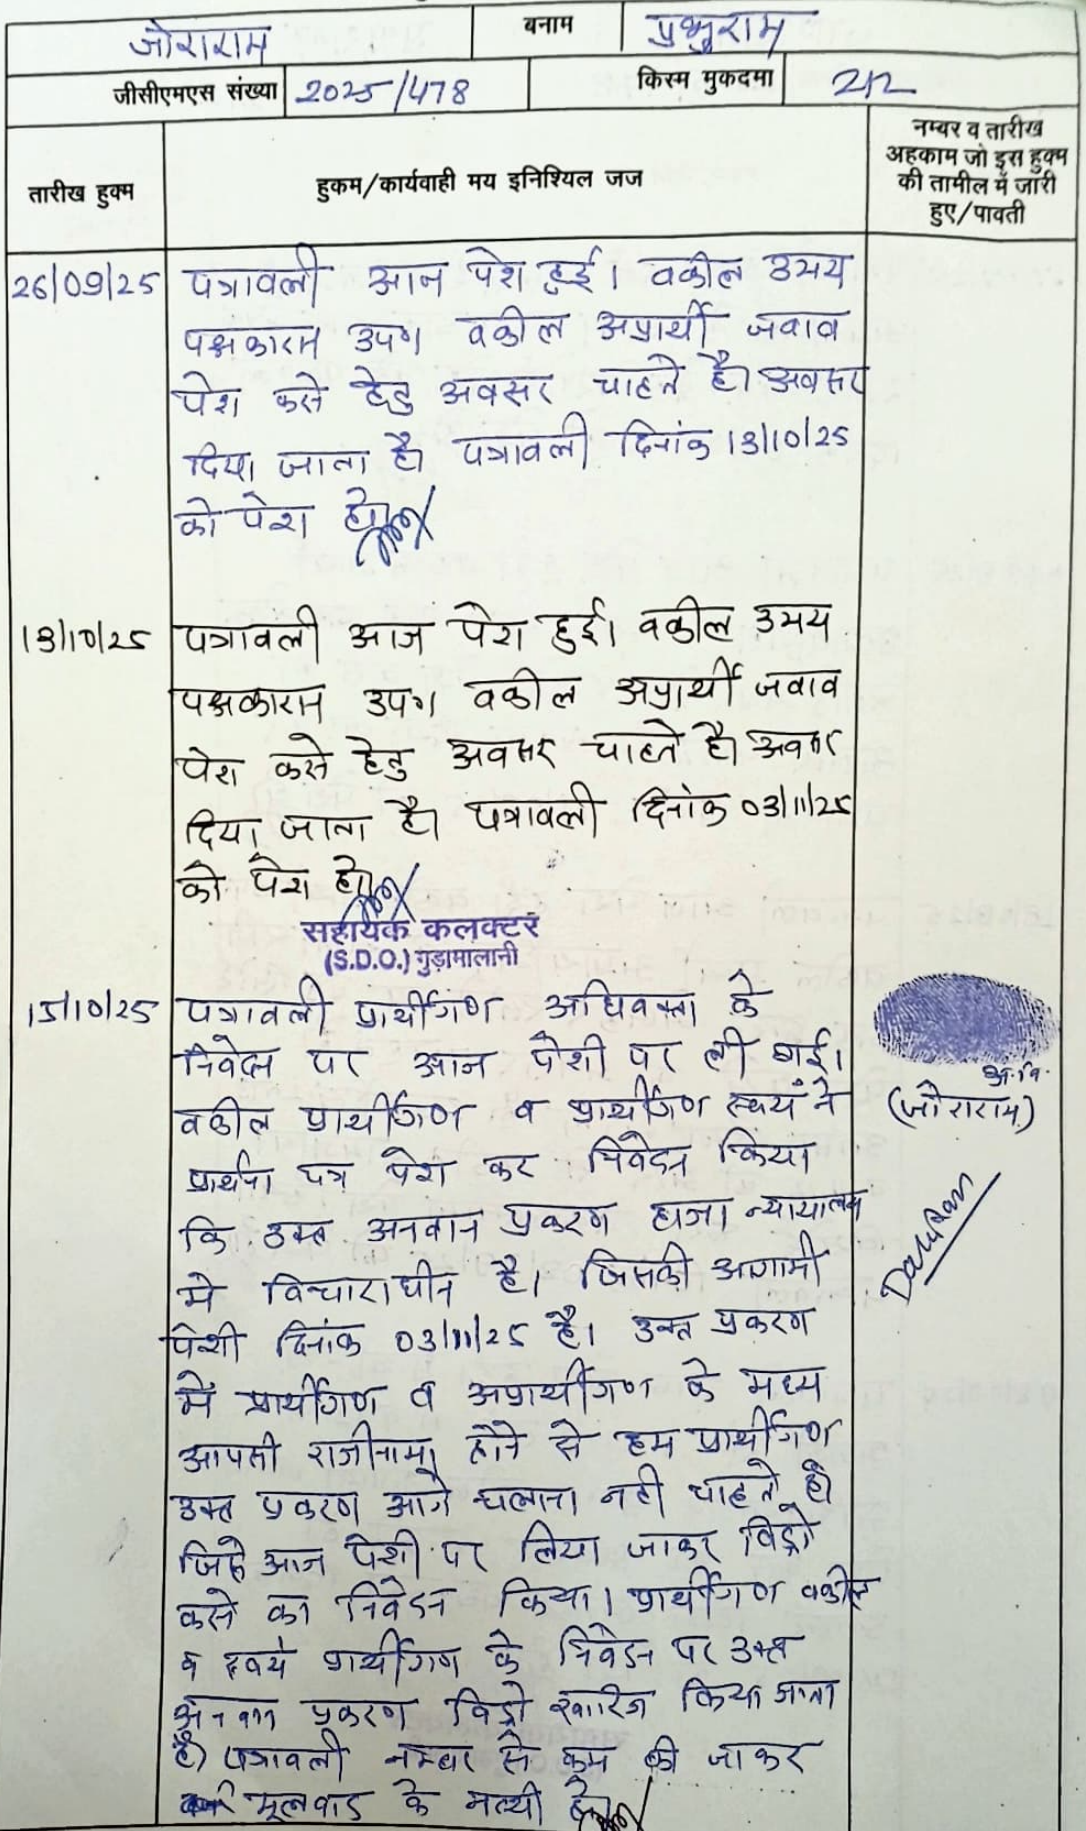 जोराराम बनाम प्रभुराम
जीसीएमएस संख्या 2025/478 किस्म मुकदमा 212
तारीख हुक्म
हुकम/कार्यवाही मय इनिश्यिल जज
नम्बर व तारीख
अहकाम जो इस हुक्म
की तामील में जारी
हुए/पावती
26/09/25 पत्रावली आज पेश हुई। वकील उभय
पक्षकारान उप०। वकील अप्रार्थी जवाब
पेश करने हेतु अवसर चाहते है। अवसर
दिया जाता है। पत्रावली दिनांक 13/10/25
को पेश हो।
13/10/25 पत्रावली आज पेश हुई। वकील उभय
पक्षकारान उप०। वकील अप्रार्थी जवाब
पेश करने हेतु अवसर चाहते है। अवसर
दिया जाता है। पत्रावली दिनांक 03/11/25
को पेश हो।
सहायक कलक्टर
(S.D.O.) गुड़ामालानी
15/10/25 पत्रावली प्रार्थीगण अधिवक्ता के
निवेदन पर आज पेशी पर ली गई।
वकील प्रार्थीगण व प्रार्थीगण स्वयं ने
प्रार्थना पत्र पेश कर निवेदन किया
कि उक्त अनवान प्रकरण हाजा न्यायालय
मे विचाराधीन है। जिसकी आगामी
पेशी दिनांक 03/11/25 है। उक्त प्रकरण
में प्रार्थीगण व अप्रार्थीगण के मध्य
आपसी राजीनामा होने से हम प्रार्थीगण
उक्त प्रकरण आगे चलाना नही चाहते है।
जिसे आज पेशी पर लिया जाकर विड्रो
करने का निवेदन किया। प्रार्थीगण वकील
व स्वयं प्रार्थीगण के निवेदन पर उक्त
अनवान प्रकरण विड्रो खारिज किया जाता
है। पत्रावली नम्बर से कम की जाकर
मूलवाद के नत्थी हो।
अ.नि.
(जोराराम)